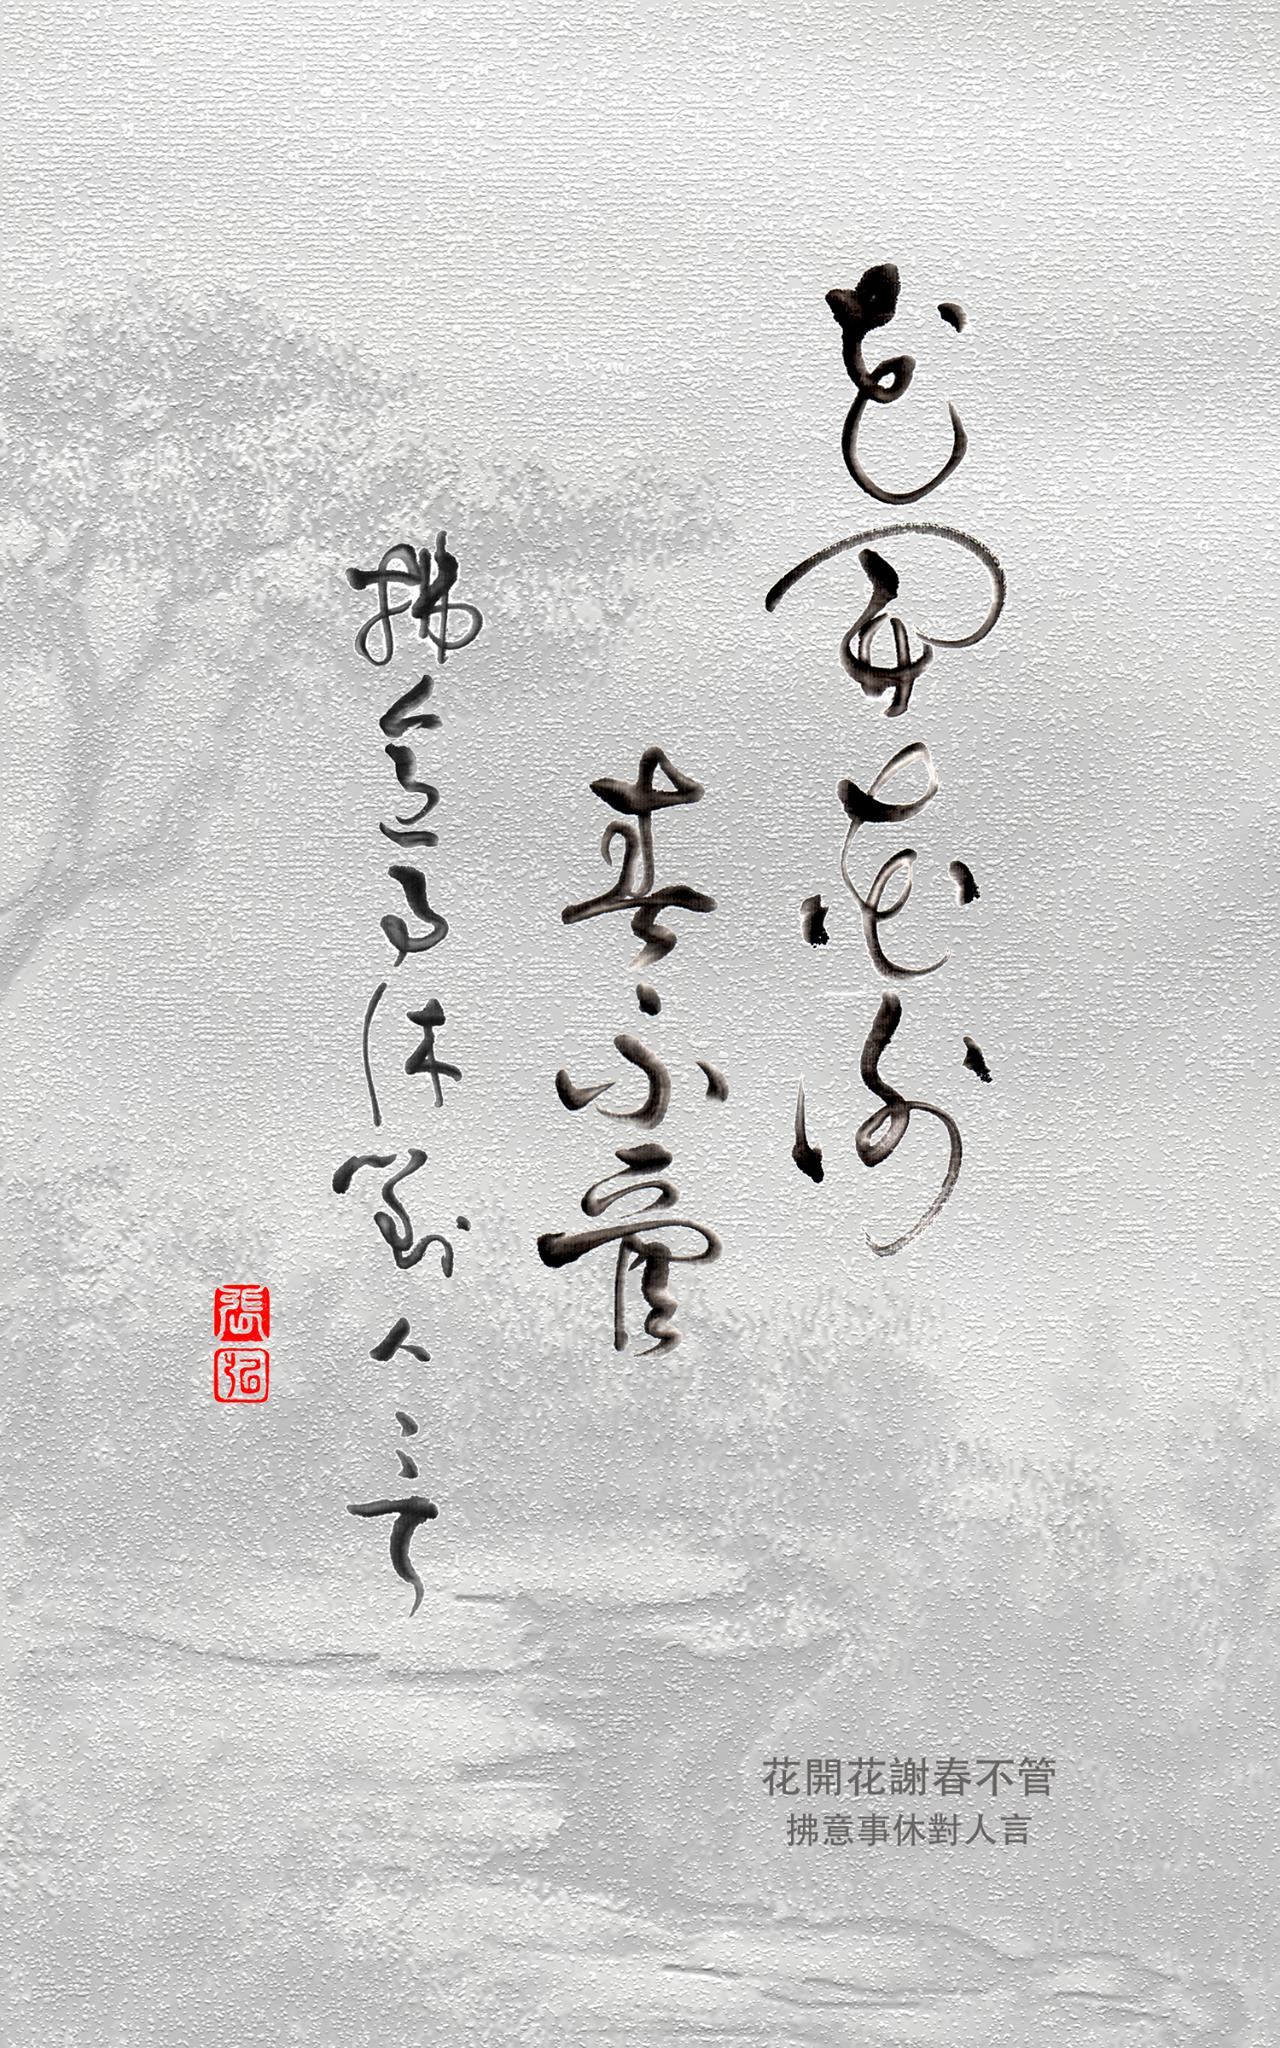 花開花謝
春不管
拂意事休對人言
張
花開花謝春不管
拂意事休對人言